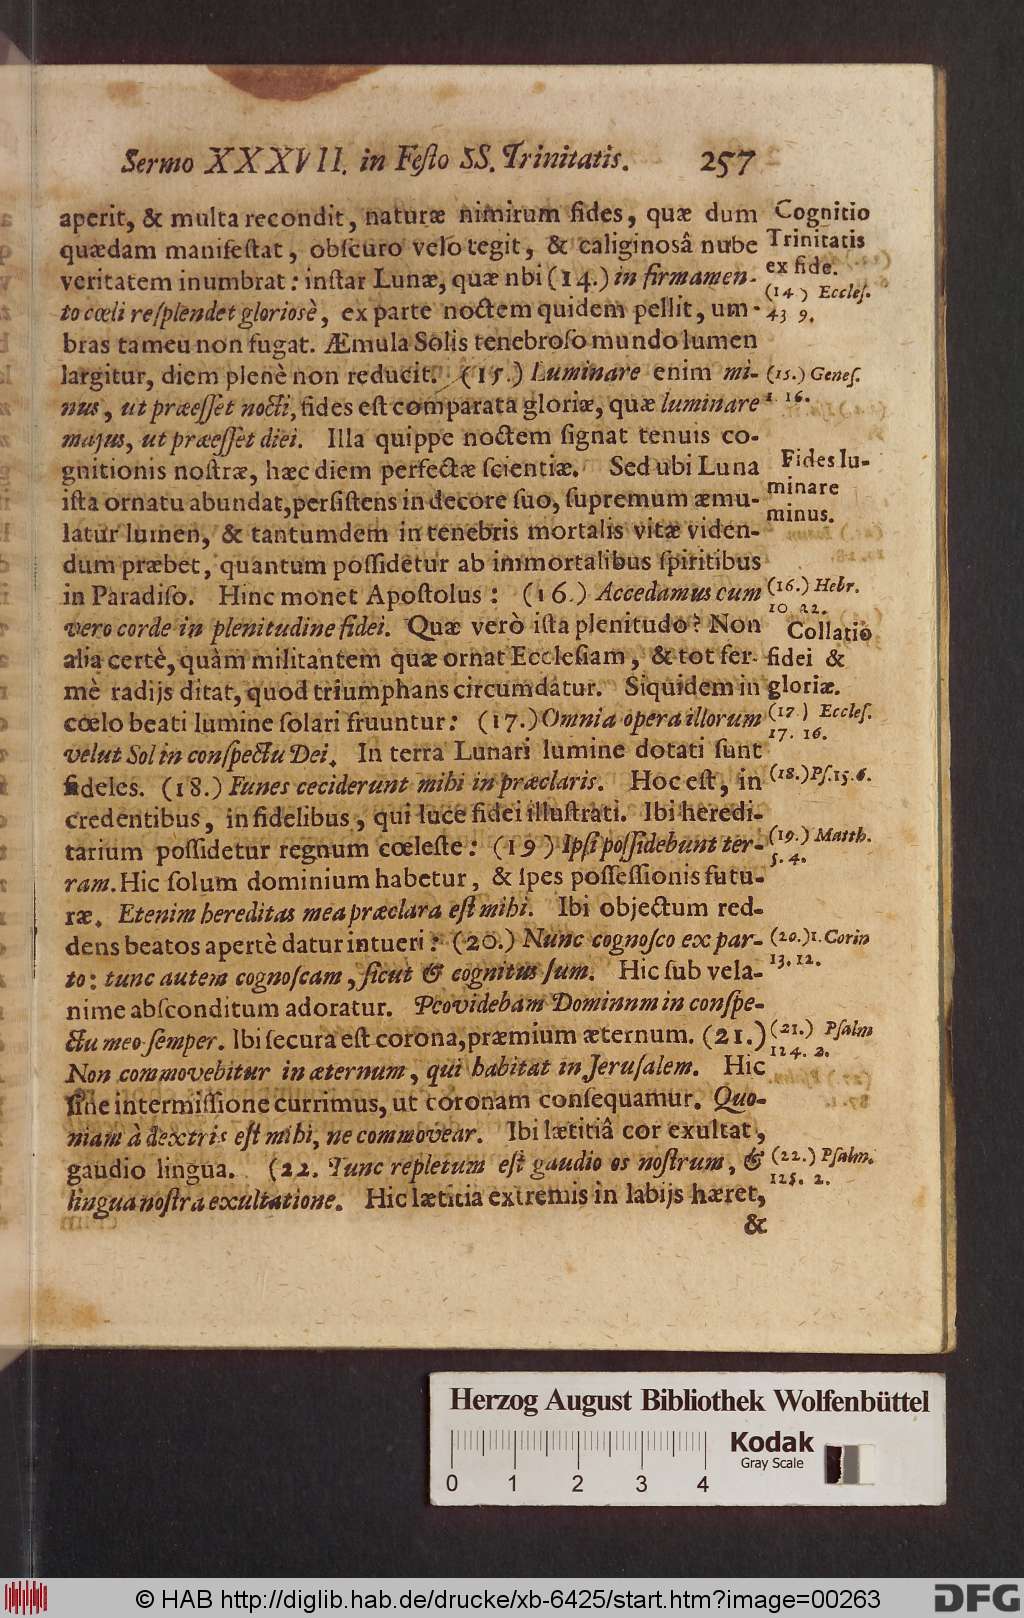 Sermo XXXVII. in Feſto SS. Trinitatis. 257
aperit, & multa recondit, naturæ nimirum fides, quæ dum
quædam manifeſtat, obſcuro velo tegit, & caliginosâ nube
veritatem inumbrat: inſtar Lunæ, quæ nbi (14.) in firmamen-
to cœli reſplendet gloriosè, ex parte noctem quidem pellit, um-
bras tameu non fugat. Æmula Solis tenebroſo mundo lumen
largitur, diem plenè non reducit. (15.) Luminare enim mi-
nus, ut præeſſet nocti, fides eſt comparata gloriæ, quæ luminare
majus, ut præeſſet diei. Illa quippe noctem ſignat tenuis co-
gnitionis noſtræ, hæc diem perfectæ ſcientiæ. Sed ubi Luna
iſta ornatu abundat, perſiſtens in decore ſuo, ſupremum æmu-
latur lumen, & tantumdem in tenebris mortalis vitæ viden-
dum præbet, quantum poſſidetur ab immortalibus ſpiritibus
in Paradiſo. Hinc monet Apoſtolus: (16.) Accedamus cum
vero corde in plenitudine fidei. Quæ verò iſta plenitudo? Non
alia certè, quàm militantem quæ ornat Eccleſiam, & tot fer-
mè radijs ditat, quod triumphans circumdatur. Siquidem in
cœlo beati lumine ſolari fruuntur: (17.) Omnia opera illorum
velut Sol in conſpectu Dei. In terra Lunari lumine dotati ſunt
fideles. (18.) Funes ceciderunt mihi in præclaris. Hoc eſt, in
credentibus, in fidelibus, qui luce fidei illuſtrati. Ibi heredi-
tarium poſſidetur regnum cœleſte: (19) Ipſi poſſidebunt ter-
ram. Hic ſolum dominium habetur, & ſpes poſſeſſionis futu-
ræ. Etenim hereditas mea præclara eſt mihi. Ibi objectum red-
dens beatos apertè datur intueri: (20.) Nunc cognoſco ex par-
to: tunc autem cognoſcam, ſicut & cognitus ſum. Hic ſub vela-
nime abſconditum adoratur. Pcovidebam Dominnm in conſpe-
ctu meo ſemper. Ibi ſecura eſt corona, præmium æternum. (21.)
Non commovebitur in æternum, qui habitat in Jeruſalem. Hic
ſine intermiſſione currimus, ut coronam conſequamur. Quo-
niam à dextris eſt mihi, ne commovear. Ibi lætitiâ cor exultat,
gaudio lingua. (22. Tunc repletum eſt gaudio os noſtrum, &
lingua noſtra exultatione. Hic lætitia extremis in labijs hæret,
&
Cognitio
Trinitatis
ex fide.
(14) Eccleſ.
43 9.
(15.) Geneſ.
1 16.
Fides lu-
minare
minus.
(16.) Hebr.
10 22.
Collatio
fidei &
gloriæ.
(17) Eccleſ.
17. 16.
(18.) Pſ. 15. 6.
(19.) Matth.
5. 4.
(20.) 1. Corin
13. 12.
(21.) Pſalm
124. 2.
(22.) Pſalm.
125. 2.
Herzog August Bibliothek Wolfenbüttel
Kodak
Gray Scale
0 1 2 3 4
© HAB http://diglib.hab.de/drucke/xb-6425/start.htm?image=00263
DFG